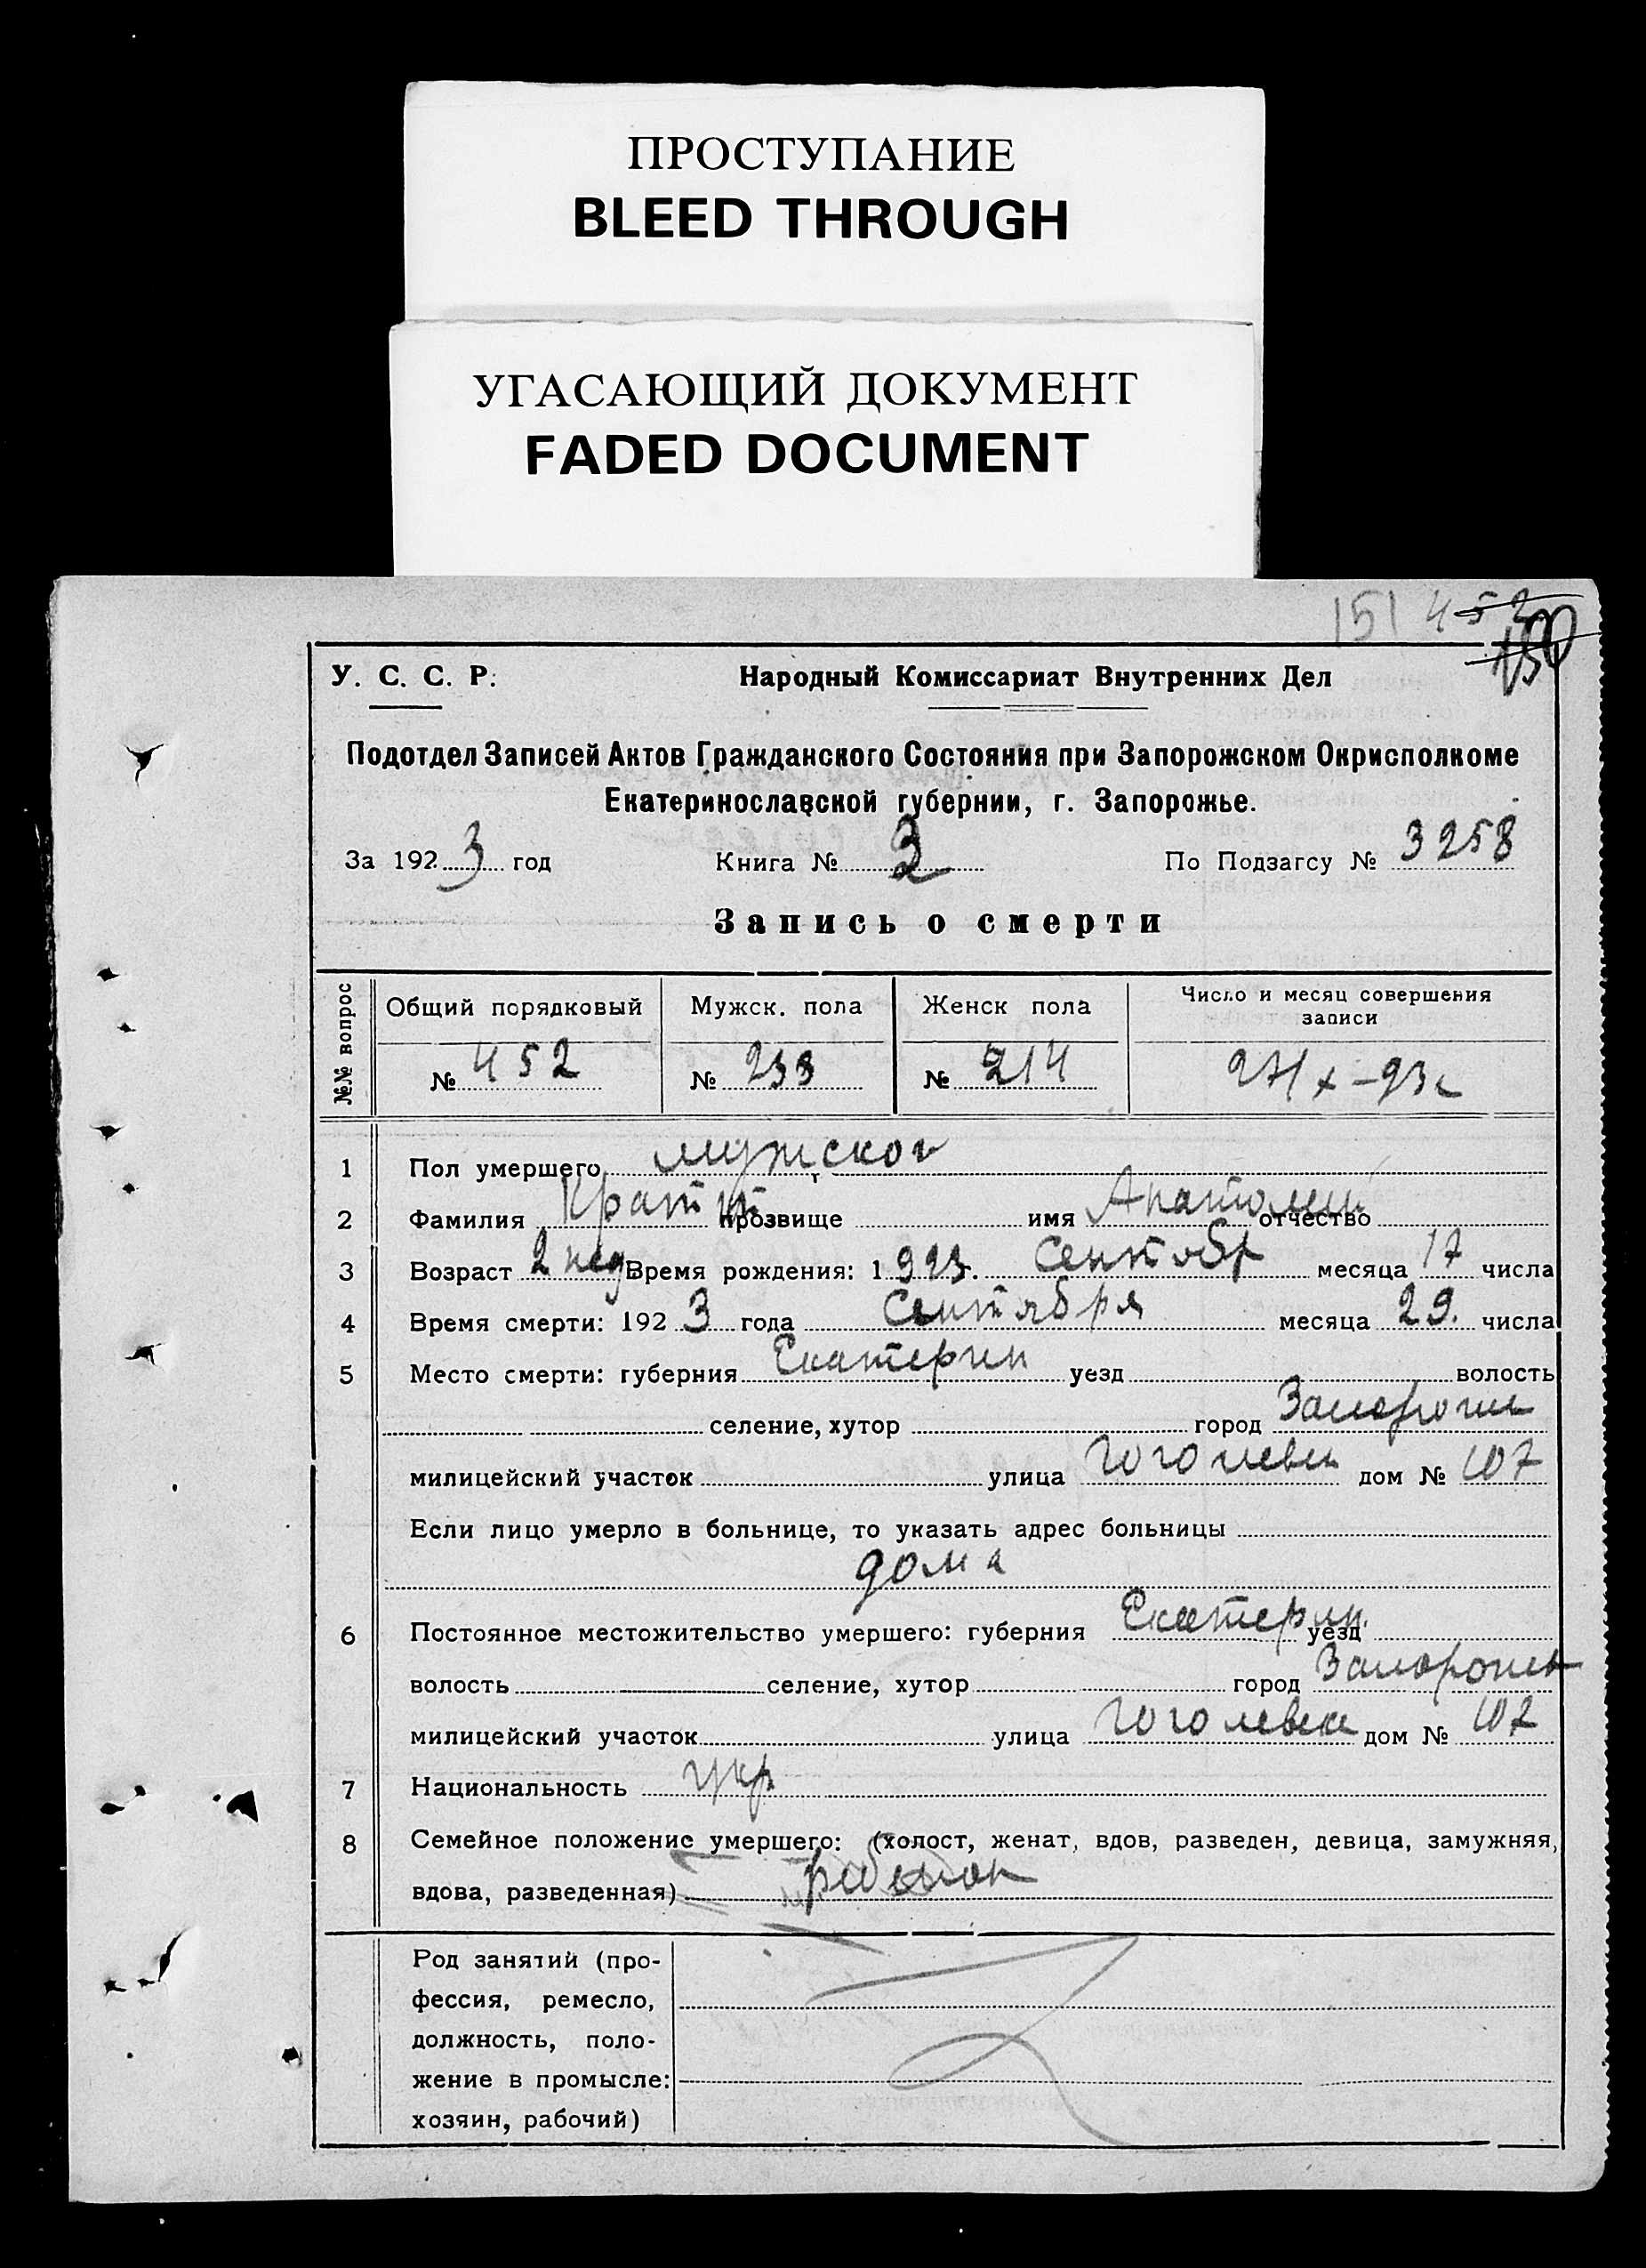 ПРОСТУПАНИЕ
BLEED THROUGH
УГАСАЮЩИЙ ДОКУМЕНТ
FADED DOCUMENT
151 452
150
У. С. С. Р. Народный Комиссариат Внутренних Дел
Подотдел Записей Актов Гражданского Состояния при Запорожском Окрисполкоме
Екатеринославской губернии, г. Запорожье.
За 1923 год Книга № 3 По Подзагсу № 3258
Запись о смерти
№№ вопрос Общий порядковый Мужск. пола Женск пола Число и месяц совершения
записи
№ 452 № 233 № 214
1 Пол умершего мужской
2 Фамилия прозвище имя Анатолий отчество
3 Возраст 2 нед Время рождения: 1923 г. Сентябр месяца 17 числа
4 Время смерти: 1923 года Сентября месяца 29. числа
5 Место смерти: губерния Екатерин уезд волость
селение, хутор город Запорожье
милицейский участок улица Гоголевск дом № 107
Если лицо умерло в больнице, то указать адрес больницы
дома
6 Постоянное местожительство умершего: губерния Екатерин. уезд
волость селение, хутор город Запорожье
милицейский участок улица Гоголевск дом № 107
7 Национальность укр
8 Семейное положение умершего: (холост, женат, вдов, разведен, девица, замужняя,
вдова, разведенная) ребенок
Род занятий (про-
фессия, ремесло,
должность, поло-
жение в промысле:
хозяин, рабочий)